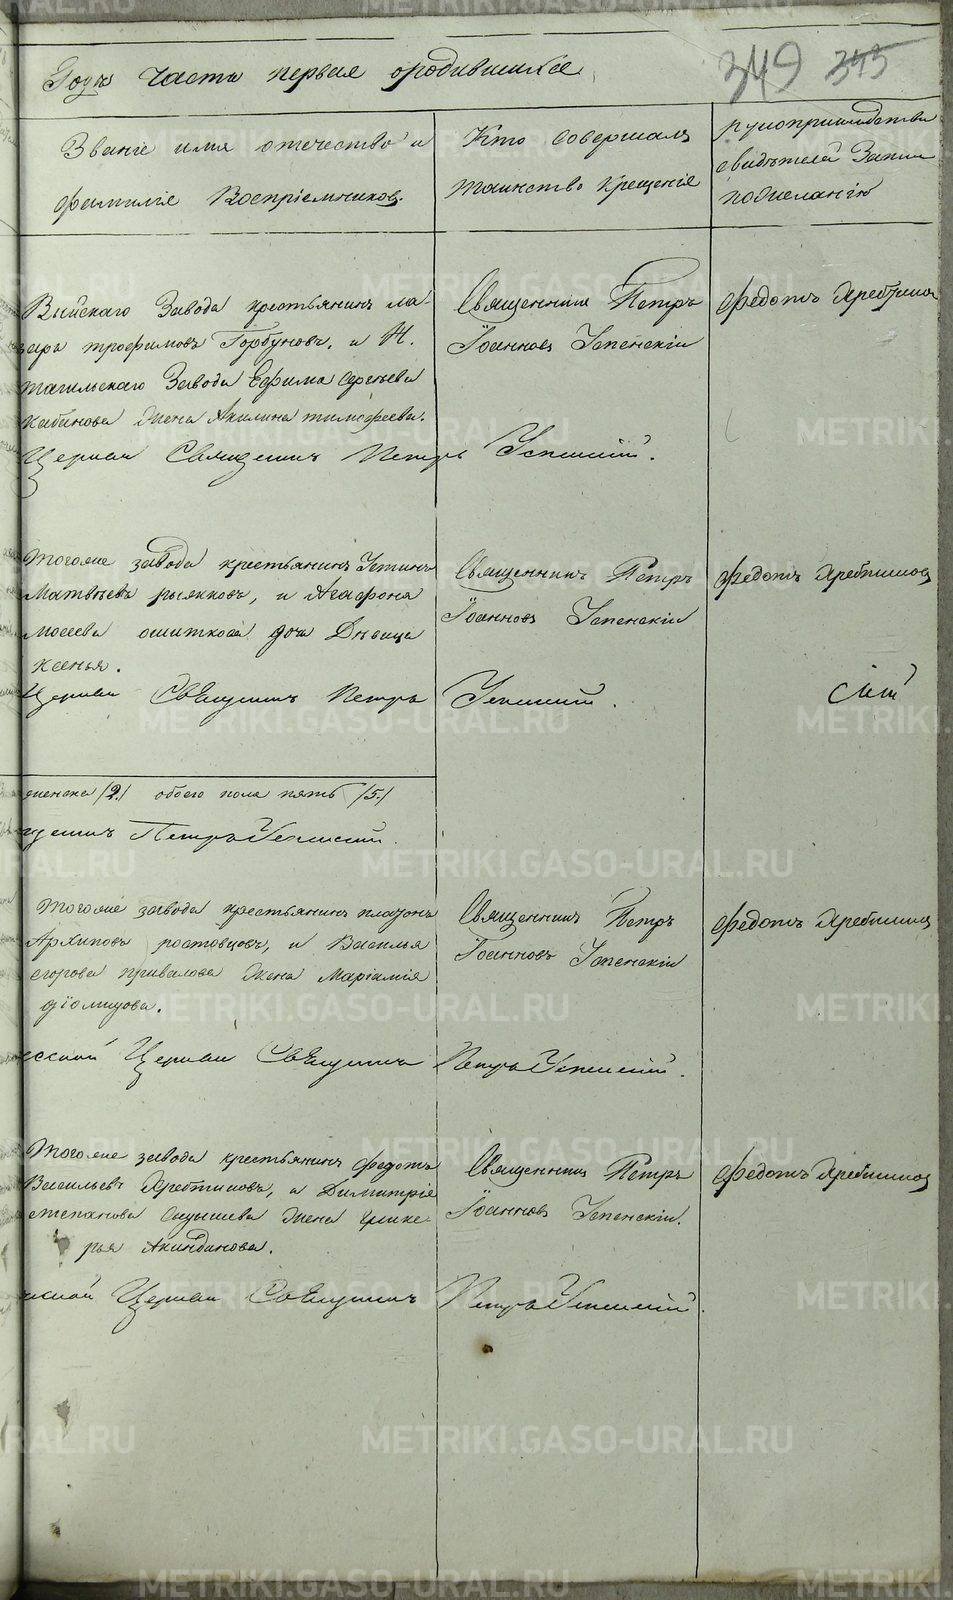 Годъ часть первая о родившихся
349 345
Званіе имя отечество и
фамиліе Воспріемниковъ.
Кто совершалъ
таинство крещеніе
рукоприкладство
свидѣтелей записи
по желанію
Выйскаго Завода крестьянинъ ла-
зарь трофимовъ Горбуновъ, и Н.
тагильскаго Завода Ефрима Сергѣева
кабанова Жена Акилина тимофеева.
Священникъ Петръ
Іоанновъ Успенскій
Федотъ Хребтиковъ
Церкви Священникъ Петръ Успенскій.
тогоже завода крестьянинъ Устинъ
Матвѣевъ, и Агафона
мосеева дочь Дѣвица
ксенья.
Священникъ Петръ
Іоанновъ Успенскій
Федотъ Хребтиковъ
Церкви Священникъ Петръ Успенскій.
женска /2/ обоего пола пять /5/
Петръ Успенскій.
тогоже завода крестьянинъ платонъ
Архиповъ ростовцовъ, и Василья
егорова привалова Жена Маріамія
діомидова.
Священникъ Петръ
Іоанновъ Успенскій
Федотъ Хребтиковъ
Церкви Священникъ Петръ Успенскій.
Тогоже завода крестьянинъ федотъ
Васильевъ Хребтиковъ, и Димитрія
степанова Жена глике-
рья Акиндинова.
Священникъ Петръ
Іоанновъ Успенскій.
Федотъ Хребтиковъ
Церкви Священникъ Петръ Успенскій.
METRIKI.GASO-URAL.RU